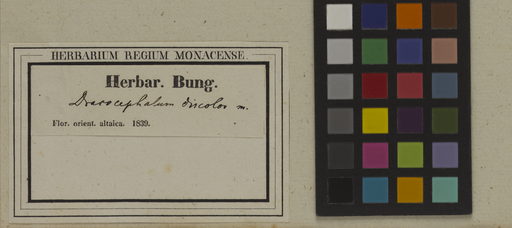 HERBARIUM REGIUM MONACENSE.
Herbar. Bung.
Dracocephalum discolor m.
Flor. orient. altaica. 1839.